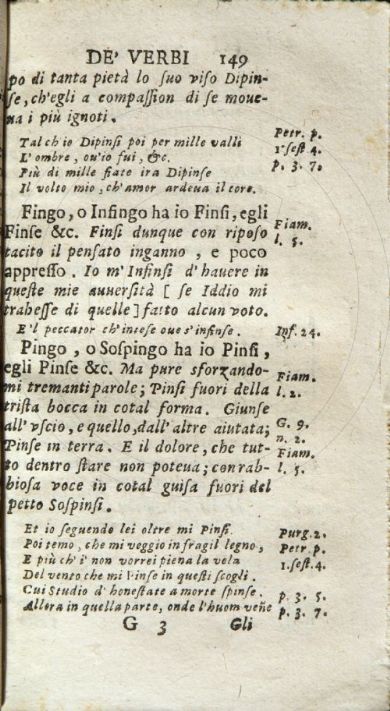 DE' VERBI 149
po di tanta pietà lo suo viso Dipin-
se, ch'egli a compassion di se moue-
na i più ignoti.
Tal ch'io Dipinsi poi per mille valli Petr. p.
L'ombre, ou'io fui, &c. 1. sest. 4.
Più di mille fiate ira Dipinse p. 3. 7.
Il volto mio, ch'amor ardeua il core.
Fingo, o Infingo ha io Finsi, egli
Finse &c. Finsi dunque con riposo Fiam.
tacito il pensato inganno, e poco l. 5.
appresso. Io m'Infinsi d'hauere in
queste mie auuersità [ se Iddio mi
trahesse di quelle ] fatto alcun voto.
E'l peccator ch'intese oue s'infinse. Inf. 24.
Pingo, o Sospingo ha io Pinsi,
egli Pinse &c. Ma pure sforzando-
mi tremanti parole; Pinsi fuori della Fiam.
trista bocca in cotal forma. Giunse l. 2.
all'vscio, e quello, dall'altre aiutata; G. 9.
Pinse in terra. E il dolore, che tut- n. 2.
to dentro stare non poteua; con rab- Fiam.
biosa voce in cotal guisa fuori del l. 5.
petto Sospinsi.
Et io seguendo lei oltre mi Pinsi. Purg. 2.
Poi temo, che mi veggio in fragil legno, Petr. p.
E più ch'i' non vorrei piena la vela 1. sest. 4.
Del vento che mi Pinse in questi scogli.
Cui Studio d'honestate a morte spinse. p. 3. 5.
Allora in quella parte, onde l'huom veñe p. 3. 7.
G 3 Gli